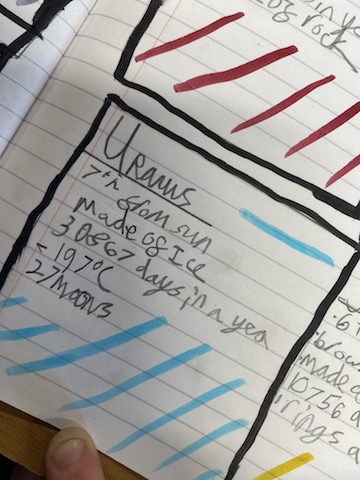 of rock
URanus
7th from sun
made of Ice
30867 days in a yea
-197°C
27 Moons
.6
brow
made
10756
rings a